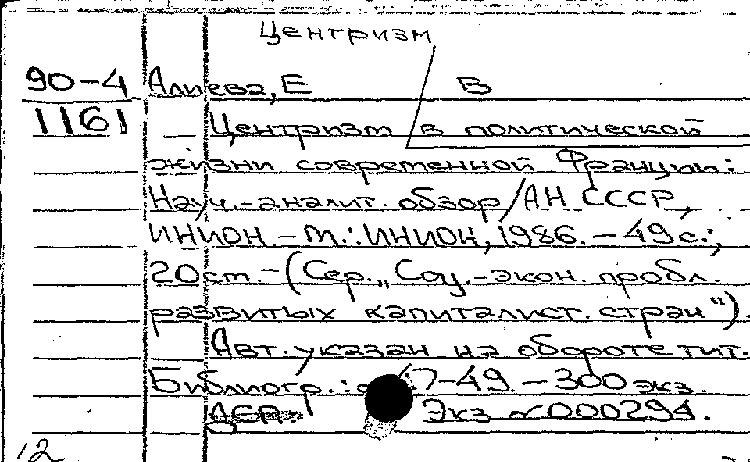 Центризм
90-4 Алиева, Е В
1161 Центризм в политической
жизни современной Франции:
Науч.-аналит. обзор/АН СССР,
ИНИОН. - М.: ИНИОН, 1986. - 49с.;
20см. - (Сер. „Соц.-экон. пробл.
развитых капиталист. стран").
Авт. указан на обороте тит.
Библиогр.: 47-49 - 300 экз.
ДСП. Экз № 000294.
12